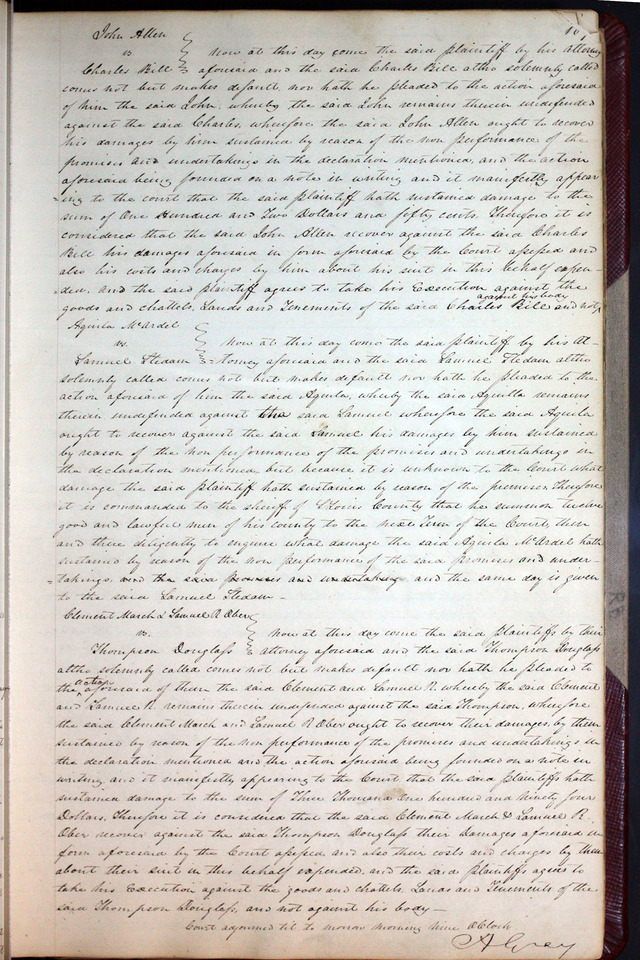 John Allen
vs. Now at this day come the said plaintiff by his attorney
Charles Bill aforesaid and the said Charles Bill altho solemnly called
comes not but makes default, nor hath he pleaded to the action aforesaid
of him the said John, whereby the said John remains therein undefended
against the said Charles, wherefore the said John Allen ought to recover
his damages by him sustained by reason of the non performance of the
promises and undertakings in the declaration mentioned, and the action
aforesaid being founded on a note in writing and it manifestly appear
ing to the court that the said plaintiff hath sustained damage to the
sum of One Hundred and Two Dollars and fifty cents. Therefore it is
considered that the said John Allen recover against the said Charles
Bill his damages aforesaid in form aforesaid by the Court assessed and
also his costs and charges by him about his suit in this behalf expen-
ded. and the said plaintiff agrees to take his Execution against the
goods and chattels, Lands and Tenements of the said Charles Bill and not against his body
Aquila McArdel
vs. Now at this day come the said plaintiff by his At-
Samuel Stedam torney aforesaid and the said Samuel Stedam altho
solemnly called comes not but makes default nor hath he pleaded to the
action aforesaid of him the said Aquila, whereby the said Aquilla remains
therein undefended against the said Samuel wherefore the said Aquila
ought to recover against the said Samuel his damages by him sustained
by reason of the non performance of the promises and undertakings in
the declaration mentioned, but because it is unknown to the Court what
damage the said plaintiff hath sustained by reason of the premises, therefore
it is commanded to the sheriff of St Louis County that he summon twelve
good and lawful men of his county to the next Term of the Court, then
and there diligently to enquire what damage the said Aquila McArdel hath
sustained by reason of the non performance of the said promises and under-
takings and the said promises and undertaking and the same day is given
to the said Samuel Stedam -
Clement March & Samuel R. Ober
vs. Now at this day come the said plaintiffs by their
Thompson Douglass attorney aforesaid and the said Thompson Douglass
altho solemnly called comes not but makes default nor hath he pleaded to
the action aforesaid of them the said Clement and Samuel R. whereby the said Clement
and Samuel R. remains therein undefended against the said Thompson, wherefore
the said Clement March and Samuel R Ober ought to recover their damages, by them
sustained by reason of the non performance of the promises and undertakings in
the declaration mentioned and the action aforesaid being founded on a note in
writing and it manifestly appearing to the Court that the said plaintiffs hath
sustained damage to the sum of Three Thousand One hundred and ninety four
Dollars, Therefore it is considered that the said Clement March & Samuel R.
Ober recover against the said Thompson Douglass their damages aforesaid in
form aforesaid by the Court assessed, and also their costs and charges by them
about their suit in this behalf expended, and the said plaintiffs agrees to
take his Execution against the goods and chattels, Lands and Tenements of the
said Thompson Douglass, and not against his body -
Court adjourned til to morrow morning nine O Clock
A Gray